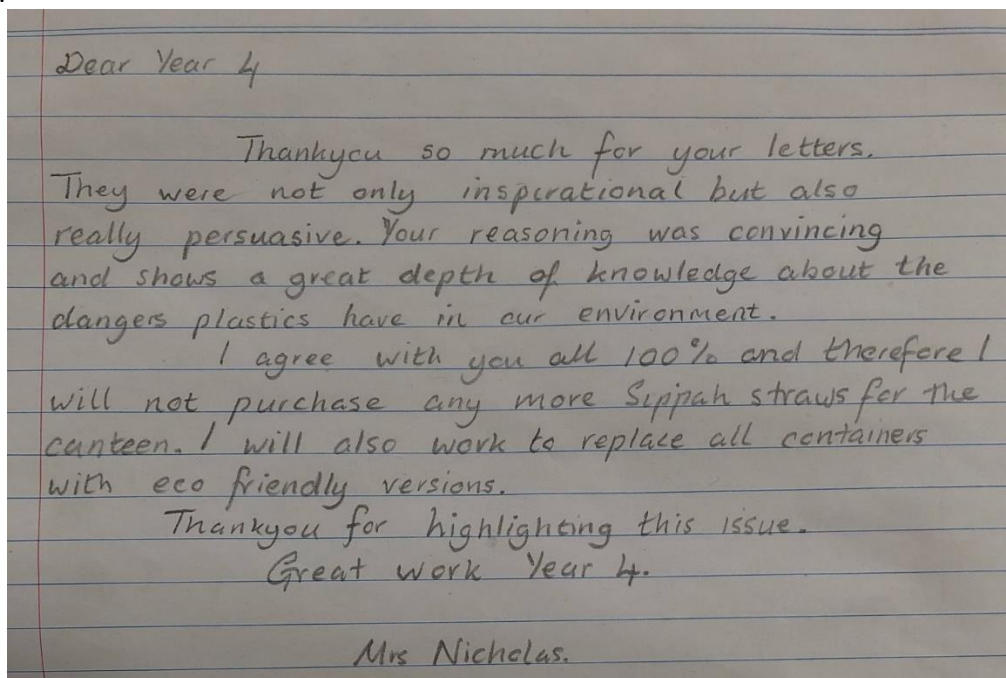 Dear Year 4
Thankyou so much for your letters.
They were not only inspirational but also
really persuasive. Your reasoning was convincing
and shows a great depth of knowledge about the
dangers plastics have in our environment.
I agree with you all 100% and therefore I
will not purchase any more Sippah straws for the
canteen. I will also work to replace all containers
with eco friendly versions.
Thankyou for highlighting this issue.
Great work Year 4.
Mrs Nicholas.